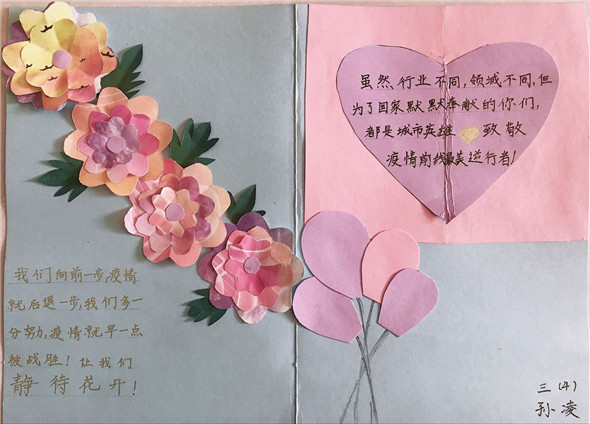 我们向前一步,疫情
就后退一步,我们多一
分努力,疫情就早一点
被战胜!让我们
静待花开!
虽然行业不同,领域不同,但
为了国家默默奉献的你们,
都是城市英雄 致敬
疫情前线最美逆行者!
三(4)
孙凌